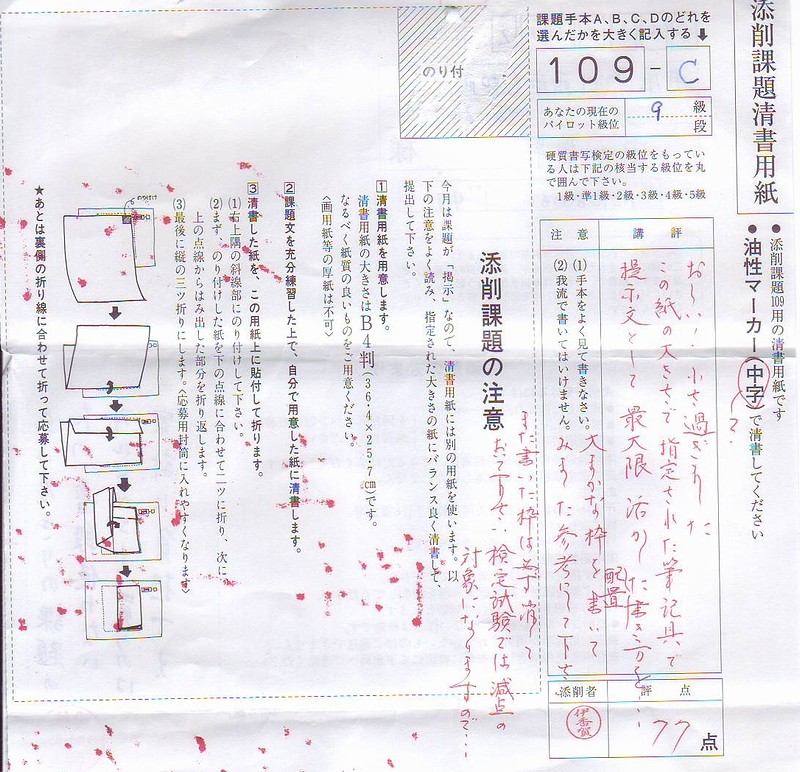 添削課題清書用紙
●添削課題109用の清書用紙です
●油性マーカー(中字)で清書してください
?
課題手本A、B、C、Dのどれを
選んだかを大きく記入する⬇
109-C
あなたの現在の
パイロット級位
9 級
段
硬質書写検定の級位をもってい
る人は下記の該当する級位を丸
で囲んで下さい。
1級・準1級・2級・3級・4級・5級
講評
小さ過ぎました
この紙の大きさで指定された筆記具で
提示文として最大限活かした書き方を…
配置
大まかな枠を書いて
みた参考にして下さい
また書いた枠は必ず消して
おいて下さい 検定試験では減点の
対象になりますので…
注意
(1)手本をよく見て書きなさい。
(2)我流で書いてはいけません。
評点
77点
添削者
伊香賀
のり付
添削課題の注意
今月は課題が「掲示」なので、清書用紙には別の用紙を使います。以
下の注意をよく読み、指定された大きさの紙にバランス良く清書して、
提出して下さい。
1清書用紙を用意します。
清書用紙の大きさはB4判(36.4×25.7㎝)です。
なるべく紙質の良いものをご用意ください。
〈画用紙等の厚紙は不可〉
2課題文を充分練習した上で、自分で用意した紙に清書します。
3清書した紙を、この用紙上に貼付して折ります。
(1)右上隅の斜線部にのり付けして下さい。
(2)まず、のり付けした紙を下の点線に合わせて二ツに折り、次に
上の点線からはみ出した部分を折り返します。
(3)最後に縦の三ツ折りにします。〈応募用封筒に入れやすくなります〉
のり付け
★あとは裏側の折り線に合わせて折って応募して下さい。